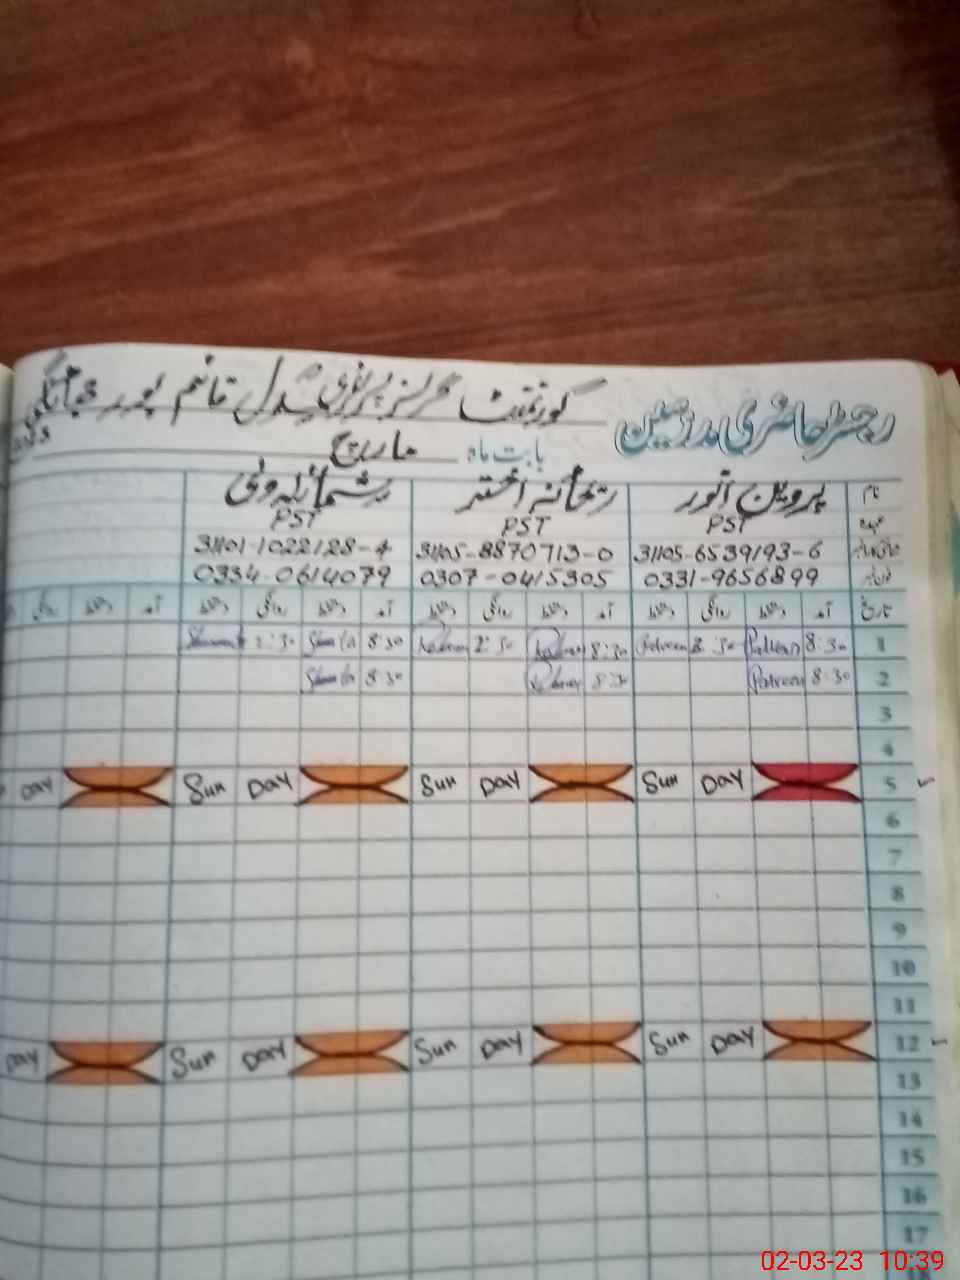 رجسٹر حاضری مدرسین گورنمنٹ گرلز پرائمری سکول قائم پور
بابت ماہ مارچ
نام پروین انور ریحانہ اختر
عہدہ PST PST PST
31105-6539193-6 31105-8870713-0 31101-1022128-4
فون نمبر 0331-9656899 0307-0415305 0334-0614079
تاریخ آمد دستخط روانگی دستخط آمد دستخط روانگی دستخط آمد دستخط روانگی دستخط آمد دستخط روانگی
1 8:30 8:30 2:30 8:30 2:30
2 8:30 8:30 8:30
3
4
5 Sun Day Sun Day Sun Day Day
6
7
8
9
10
11
12 Sun Day Sun Day Sun Day Day
13
14
15
16
17
02-03-23 10:39